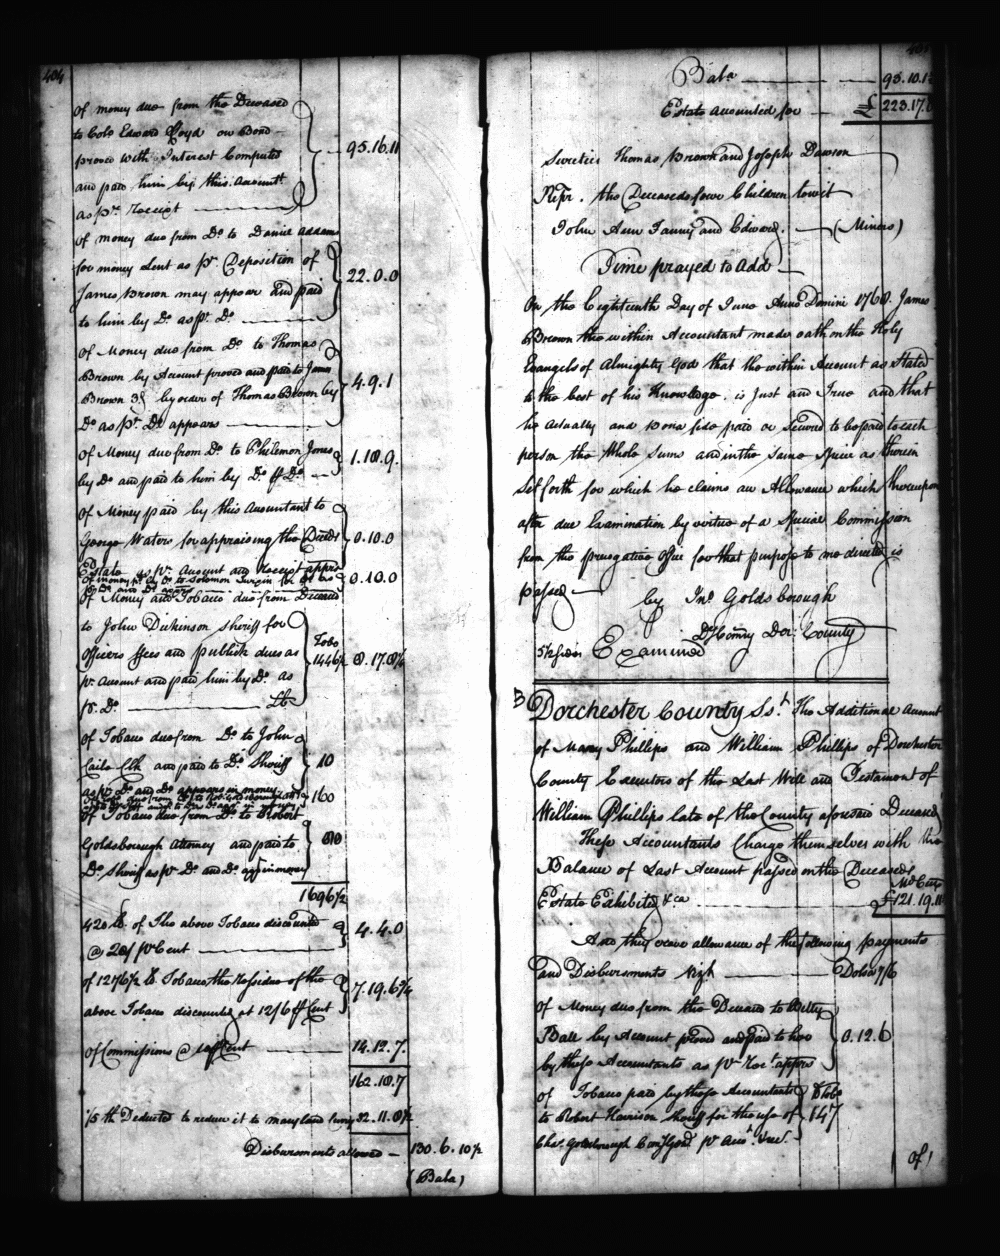 404
of money due from the Deceased
to Colo Edward Lloyd on Bond
proved with Interest Computed
and paid him by this Accountt
as pr. Receipt
95.16.11
of money due from Do to Daniel Addams
for money Lent as pr Deposition of
James Brown may appear and paid
to him by Do as pr. Do
22.0.0
of Money due from Do to Thomas
Brown by Account proved and paid to James
Brown by order of Thomas Brown by
Do as pr. Do appears
4.9.1
of Money due from Do to Philemon Jones
by Do and paid to him by Do & Do
1.18.9
of Money paid by this Accountant to
George Waters for appraising the Deceds
Estate as pr. Account and Receipt apprs
0.10.0
of money pd. by Do to Solomon for Do as
pr Do and Do appears
0.10.0
of Money and Tobacco due from Deceased
to John Dickinson Sheriff for
officers ffees and publick dues as
pr. Account and paid him by Do. as
pr. Do Lb
Tobo
1446½
8.17.8½
of Tobacco due from Do to John
Caile Clk and paid to Do Sheriff
as pr Do and Do appears in money
10
160
of Tobacco due from Do to Robert
Goldsborough Attorney and paid to
Do Sheriff as pr Do and Do appr in money
80
1696½
420 lb. of The above Tobacco discounted
@ 20/ pr Cent
4.4.0
of 1276½ lb Tobacco, the Residue of the
above Tobacco discounted at 12/6 pr Cent
7.19.6¾
of Commissions @ pr Cent
14.12.7.
162.18.7
1/5 th Deducted to reduce it to maryland Curry
32.11.8½
Disbursments allowed
130.6.10½
(Bala)
405
Bala
93.10.1
Estate accounted for
£ 223.17.
Sureties Thomas Brown and Joseph Dawson
Repr. the Deceaseds four Children towit
John Ann Fanny and Edward. (Minors)
Time prayed to Add
On the Eighteenth Day of June Anno Domini 1768. James
Brown the within Accountant made oath on the Holy
Evangels of Almighty God that the within Account as Stated
to the best of his Knowledge is Just and True and that
he actually and Bona fide paid or Secured to be paid to each
person the Whole Sums and in the Same Specie as therein
Set forth for which he claims an Allowance which thereupon
after due Examination by virtue of a Special Commission
from the prerogative Office for that purpose to me directed is
passed
by Jno Goldsborough
Dy Comry Dor: County
Examined
Dorchester County Ss.t The Additional Account
of Mary Phillips and William Phillips of Dorchester
County Executors of the Last Will and Testament of
William Phillips late of the County aforesaid Deceased
These Accountants Charge themselves with the
Balance of Last Account passed on the Deceaseds
Estate Exhibited &ca
Md Curry
£121.19.11
And they crave allowance of the following payments
and Disbursments Vizt
Dolls a 7/6
of Money due from the Deceased to Betty
Ball by Account proved and paid to her
by these Accountants as pr Rect. appears
0.12.6
of Tobacco paid by these Accountants
to Robert Harrison Sheriff for the use of
Chas. Goldsborough
Tobo
147
of